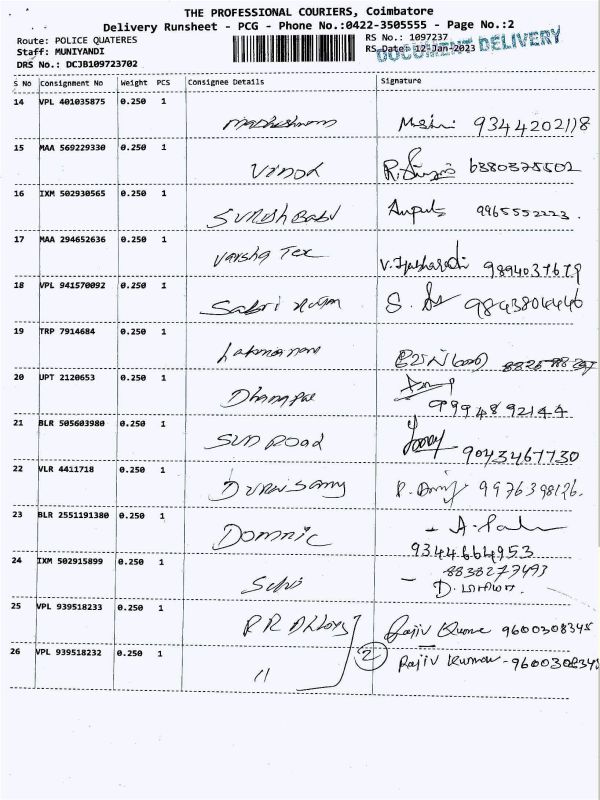 THE PROFESSIONAL COURIERS, Coimbatore
Delivery Runsheet - PCG - Phone No.:0422-3505555 - Page No.:2
Route: POLICE QUATERES
Staff: MUNIYANDI
DRS No.: DCJB109723702
RS No.: 1097237
RS Date: 12-Jan-2023
DOCUMENT DELIVERY
S No Consignment No Weight PCS Consignee Details Signature
14 VPL 401035875 0.250 1 9344202118
15 MAA 569229330 0.250 1 Vinod 6380375502
16 IXM 502930565 0.250 1 Suresh Babu 9965552223.
17 MAA 294652636 0.250 1 Varsha Tex 9894037679
18 VPL 941570092 0.250 1 Sabri 9843806446
19 TRP 7914684 0.250 1
20 UPT 2120653 0.250 1 9994892144
21 BLR 505603980 0.250 1 SUN ROAD 9043467730
22 VLR 4411718 0.250 1 Duraisamy 9976398126.
23 BLR 2551191380 0.250 1 Domnic 9344664953
24 IXM 502915899 0.250 1 Selvi 8838277493
25 VPL 939518233 0.250 1 RR Alloys Rajiv Kumar 9600308345
26 VPL 939518232 0.250 1 11 2 Rajiv Kumar - 960030834